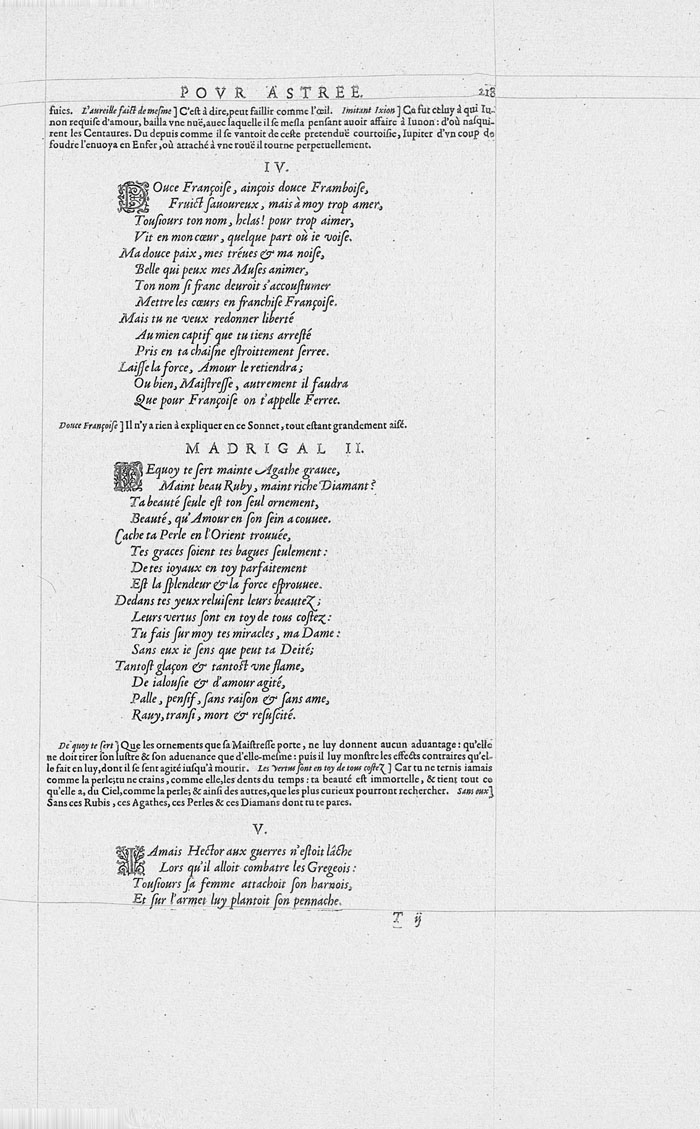 POVR ASTREE. 218
fuies. L'aureille faict de mesme] C'est à dire, peut faillir comme l'œil. Imitant Ixion] Ca fut celuy à qui Iu-
non requise d'amour, bailla vne nuë, auec laquelle il se mesla pensant auoir affaire à Iunon: d'où nasqui-
rent les Centaures. Du depuis comme il se vantoit de ceste pretenduë courtoisie, Iupiter d'vn coup de
foudre l'enuoya en Enfer, où attaché à vne rouë il tourne perpetuellement.
IV.
DOuce Françoise, ainçois douce Framboise,
Fruict sauoureux, mais à moy trop amer,
Tousiours ton nom, helas! pour trop aimer,
Vit en mon cœur, quelque part où ie voise.
Ma douce paix, mes tréues & ma noise,
Belle qui peux mes Muses animer,
Ton nom si franc deuroit s'accoustumer
Mettre les cœurs en franchise Françoise.
Mais tu ne veux redonner liberté
Au mien captif que tu tiens arresté
Pris en ta chaisne estroittement serree.
Laisse la force, Amour le retiendra;
Ou bien, Maistresse, autrement il faudra
Que pour Françoise on t'appelle Ferree.
Douce Françoise] Il n'y a rien à expliquer en ce Sonnet, tout estant grandement aisé.
MADRIGAL II.
DEquoy te sert mainte Agathe grauee,
Maint beau Ruby, maint riche Diamant?
Ta beauté seule est ton seul ornement,
Beauté, qu'Amour en son sein a couuee.
Cache ta Perle en l'Orient trouuée,
Tes graces soient tes bagues seulement:
De tes ioyaux en toy parfaitement
Est la splendeur & la force esprouuee.
Dedans tes yeux reluisent leurs beautez;
Leurs vertus sont en toy de tous costez:
Tu fais sur moy tes miracles, ma Dame:
Sans eux ie sens que peut ta Deité;
Tantost glaçon & tantost vne flame,
De ialousie & d'amour agité,
Palle, pensif, sans raison & sans ame,
Rauy, transi, mort & resuscité.
De quoy te sert] Que les ornements que sa Maistresse porte, ne luy donnent aucun aduantage: qu'elle
ne doit tirer son lustre & son aduenance que d'elle-mesme: puis il luy monstre les effects contraires qu'el-
le fait en luy, dont il se sent agité iusqu'à mourir. Les vertus sont en toy de tous costez] Car tu ne ternis iamais
comme la perle; tu ne crains, comme elle, les dents du temps: ta beauté est immortelle, & tient tout ce
qu'elle a, du Ciel, comme la perle; & ainsi des autres, que les plus curieux pourront rechercher. Sans eux]
Sans ces Rubis, ces Agathes, ces Perles & ces Diamans dont tu te pares.
V.
IAmais Hector aux guerres n'estoit lâche
Lors qu'il alloit combatre les Gregeois:
Tousiours sa femme attachoit son harnois,
Et sur l'armet luy plantoit son pennache.
T ij